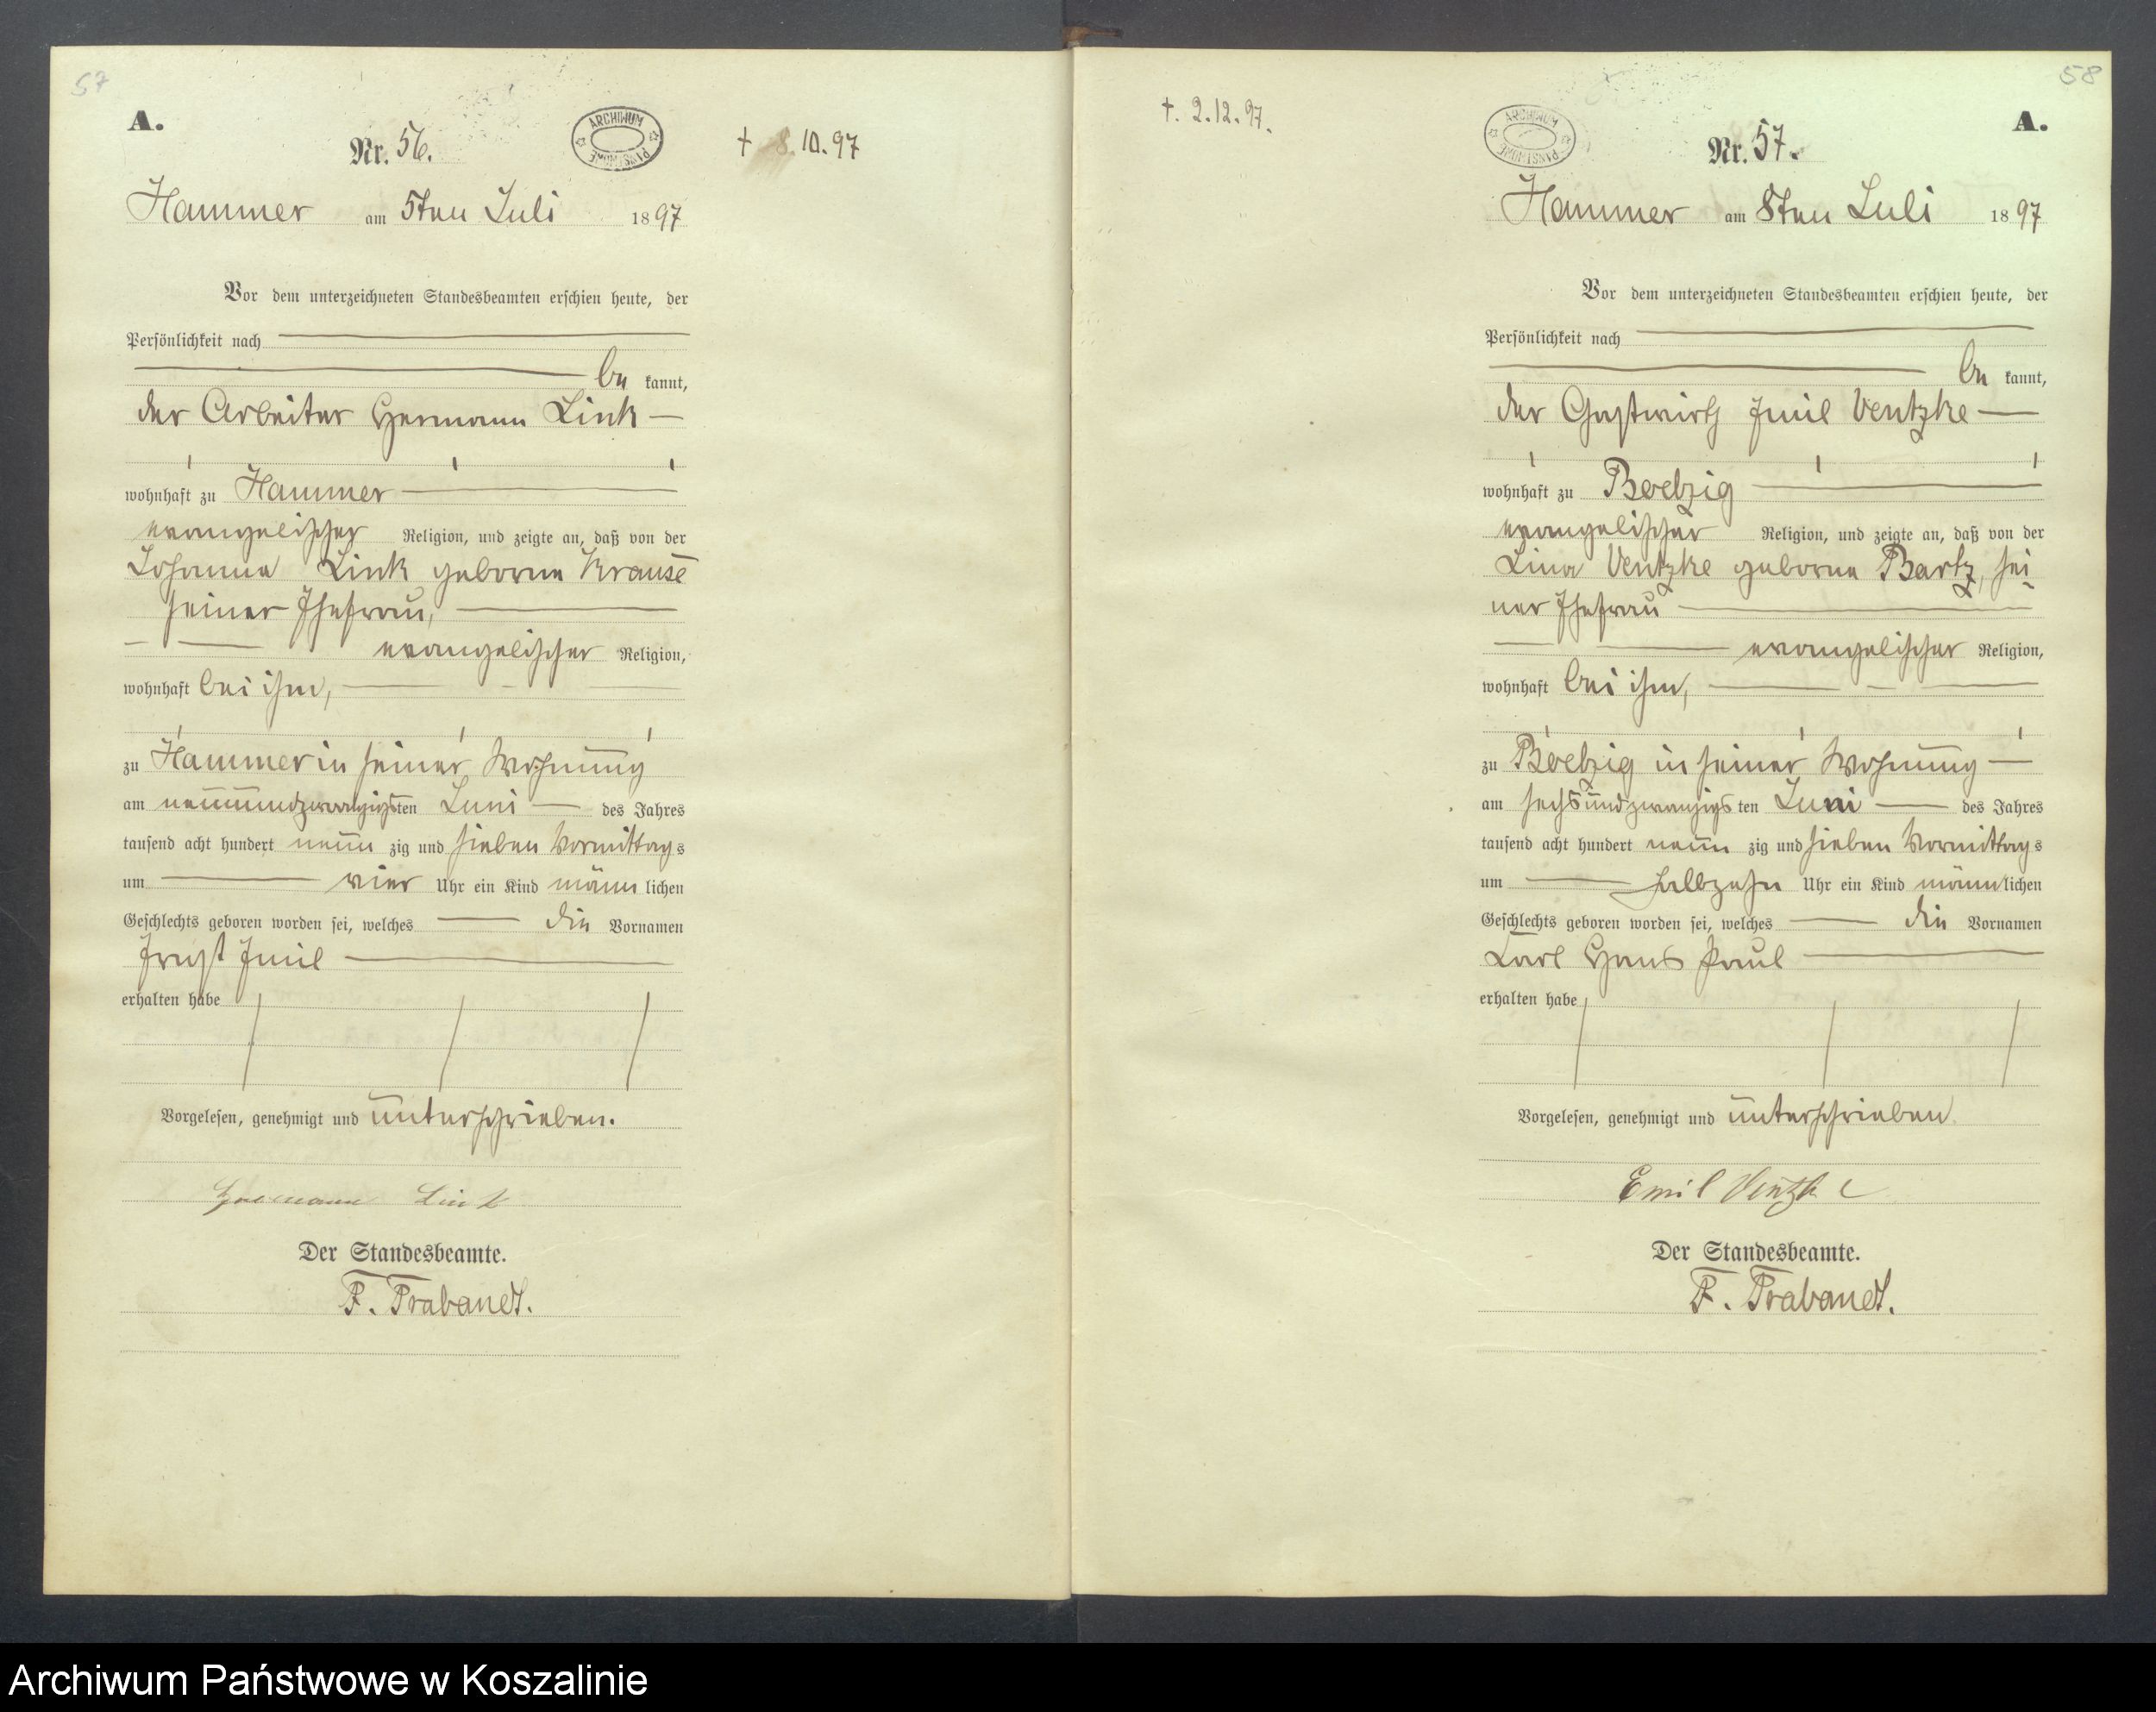 57
A.
Nr. 56.
ARCHIWUM PAŃSTWOWE
† 8.10.97
Hammer am 5ten Juli 1897
Vor dem unterzeichneten Standesbeamten erschien heute, der
Persönlichkeit nach
be kannt,
der Arbeiter Hermann Link
wohnhaft zu Hammer
evangelischer Religion, und zeigte an, daß von der
Johanna Link geborne Krause
seiner Ehefrau,
evangelischer Religion,
wohnhaft bei ihm,
zu Hammer in seiner Wohnung
am neunundzwanzigsten Juni des Jahres
tausend acht hundert neun zig und sieben Vormittags
um vier Uhr ein Kind männlichen
Geschlechts geboren worden sei, welches die Vornamen
Ernst Emil
erhalten habe
Vorgelesen, genehmigt und unterschrieben.
Hermann Link
Der Standesbeamte.
F. Trabandt.
58
†. 2.12.97.
ARCHIWUM PAŃSTWOWE
A.
Nr. 57.
Hammer am 8ten Juli 1897
Vor dem unterzeichneten Standesbeamten erschien heute, der
Persönlichkeit nach
be kannt,
der Gastwirth Emil Ventzke
wohnhaft zu Boelzig
evangelischer Religion, und zeigte an, daß von der
Lina Ventzke geborne Bartz, sei-
ner Ehefrau
evangelischer Religion,
wohnhaft bei ihm,
zu Boelzig in seiner Wohnung
am sechsundzwanzigsten Juni des Jahres
tausend acht hundert neun zig und sieben Vormittags
um halbzehn Uhr ein Kind männlichen
Geschlechts geboren worden sei, welches die Vornamen
Carl Hans Paul
erhalten habe
Vorgelesen, genehmigt und unterschrieben
Emil Ventzke
Der Standesbeamte.
F. Trabandt.
Archiwum Państwowe w Koszalinie